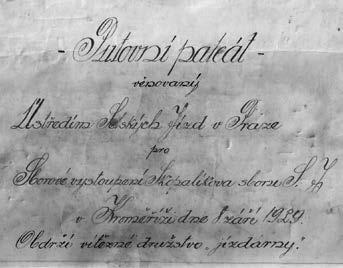 - Putovní pateát -
věnovaný
Ústředím Selských Jízd v Praze
pro
Sborové vystoupení Skopalíkova sboru S. J.
v Kroměříži dne 8 září 1929.
Obdrží vítězné družstvo „jízdárny".